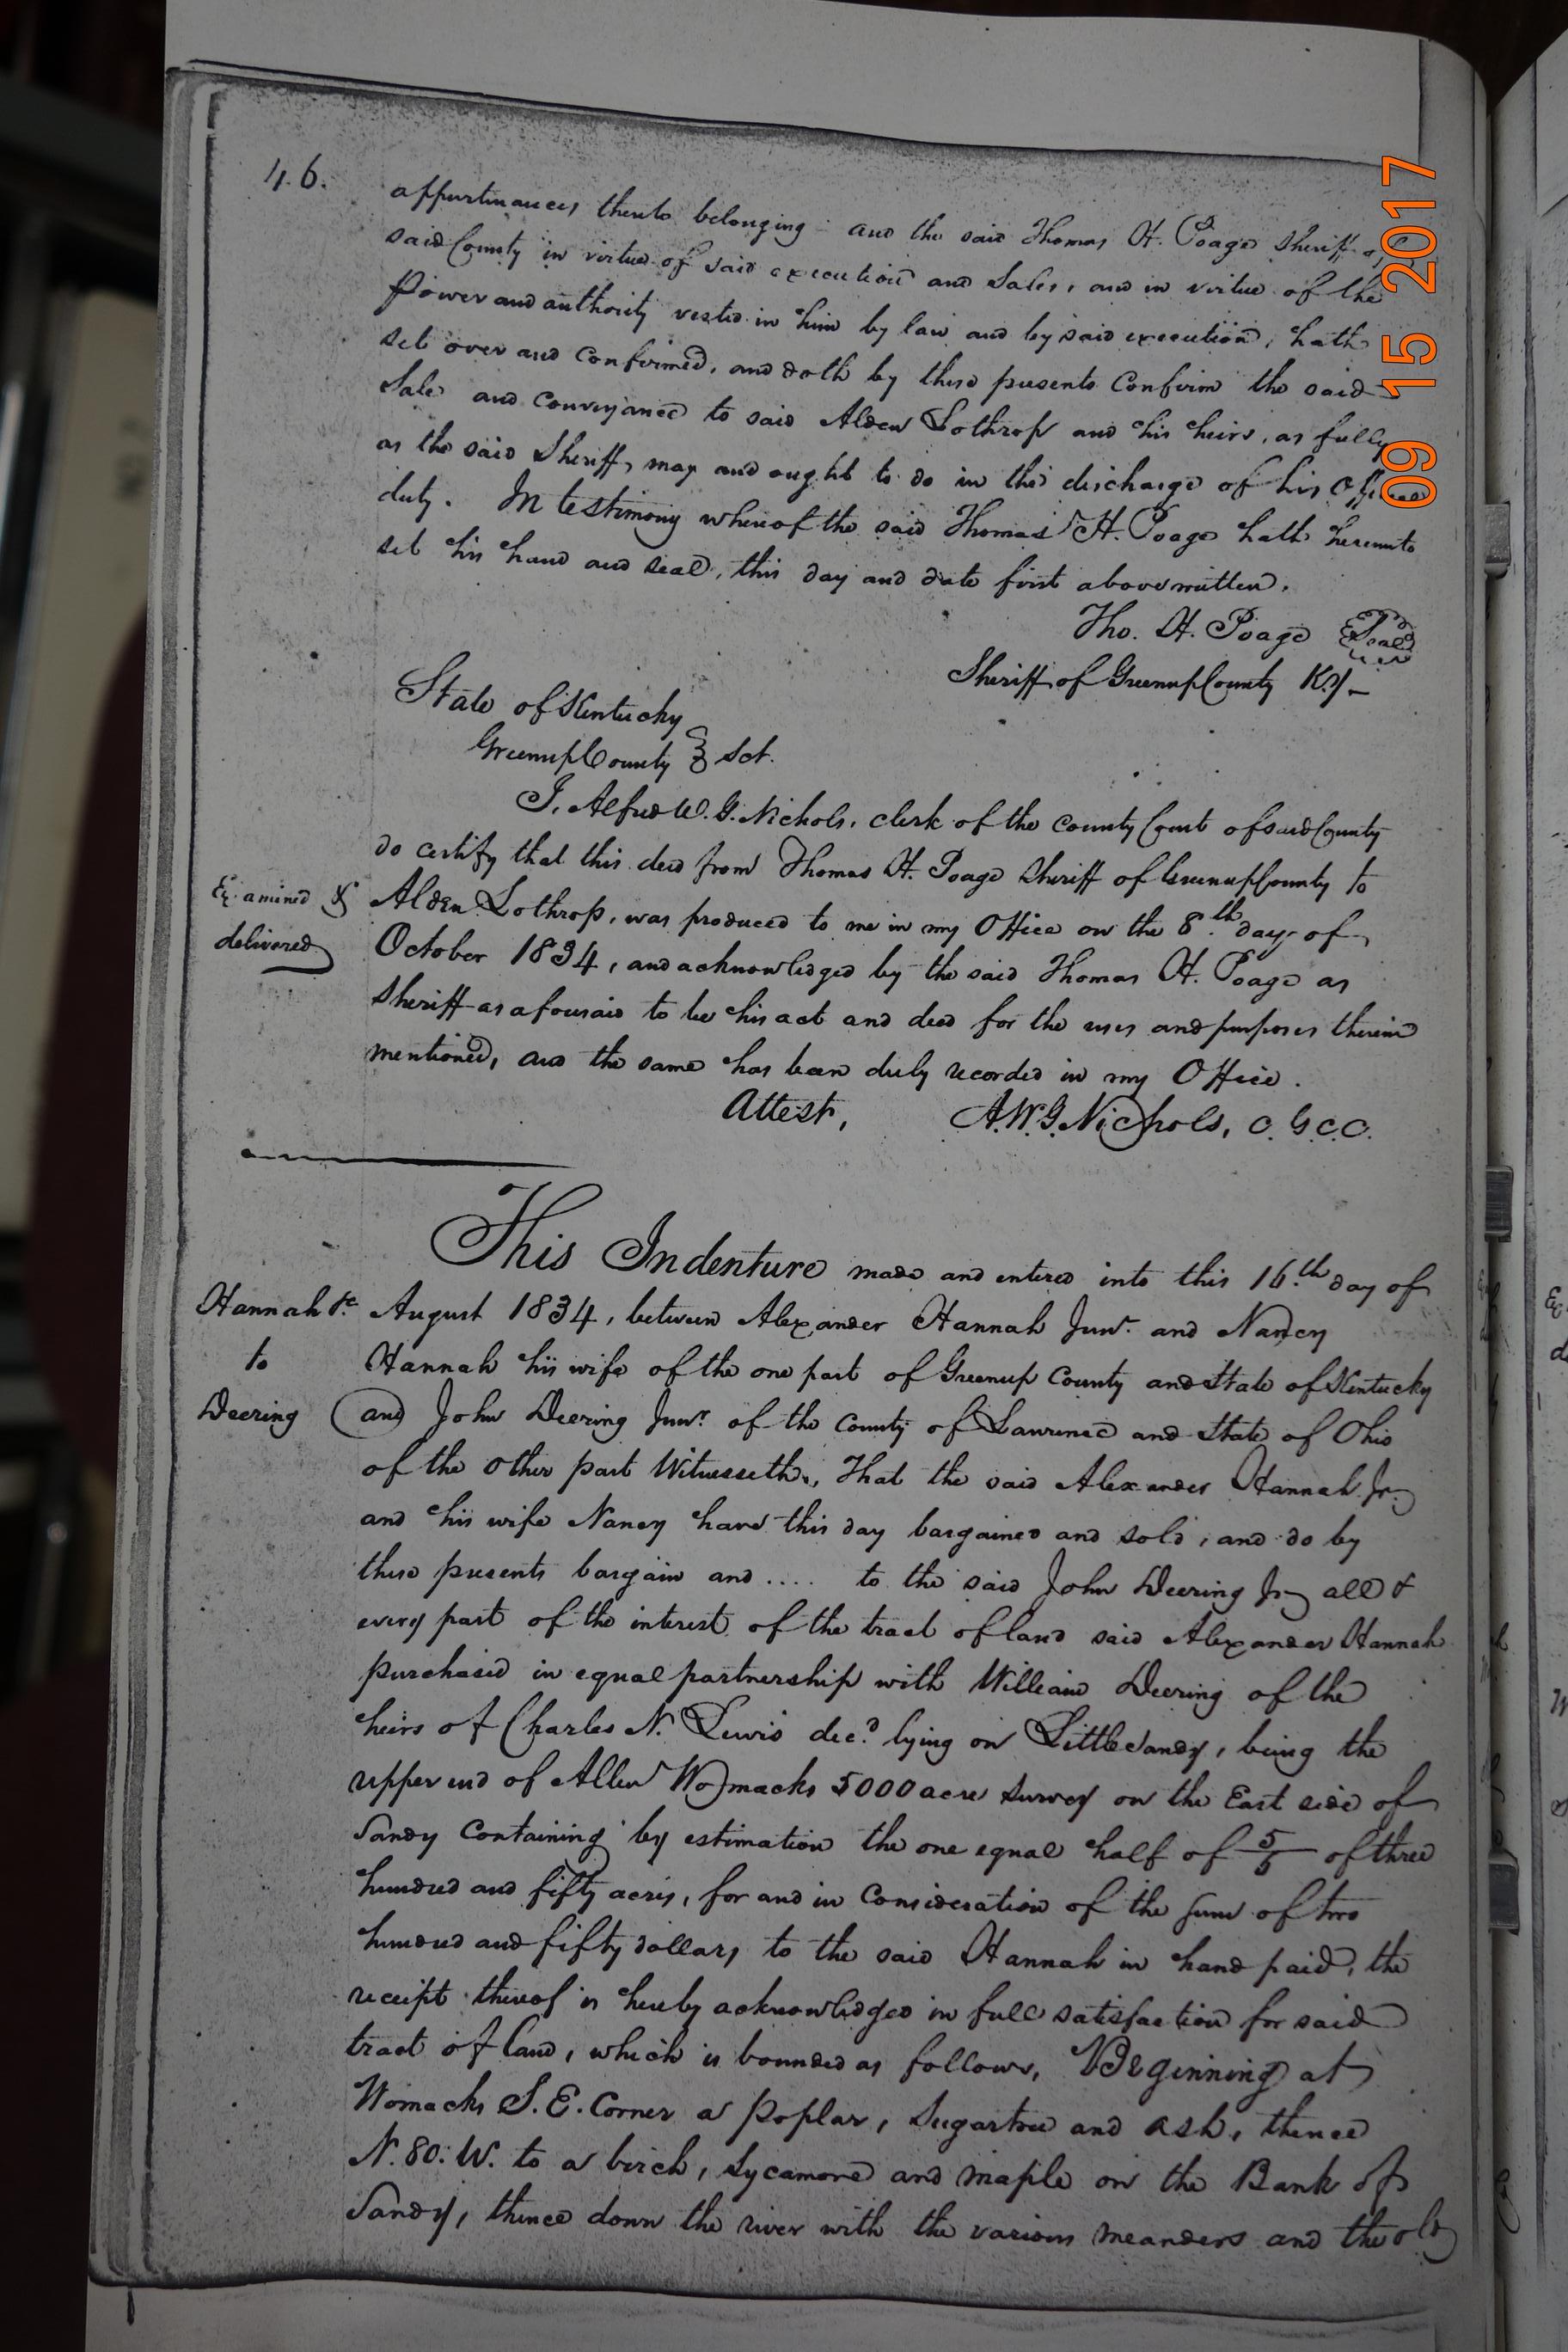 46.
appurtinances thereto belonging and the said Thomas H. Poage Sheriff of
said County in virtue of said execution and Sales, and in virtue of the
Power and authority vested in him by law and by said execution, hath
set over and confirmed, and doth by these presents Confirm the said
Sale and Conveyance to said Alden Lothrop and his heirs, as fully
as the said Sheriff, may and ought to do in the discharge of his
duty. In testimony whereof the said Thomas H. Poage hath hereunto
set his hand and seal, this day and date first above written.
Tho. H. Poage Seal
Sheriff of Greenup County Ky-
State of Kentucky
Greenup County } Sct.
I, Alfred W. G. Nichols, clerk of the County Court of said County
do certify that this deed from Thomas H. Poage Sheriff of Greenup County to
Examined & Alden Lothrop, was produced to me in my Office on the 8th day of
delivered October 1834, and acknowledged by the said Thomas H. Poage as
Sheriff as aforesaid to be his act and deed for the uses and purposes therein
mentioned, and the same has been duly recorded in my Office.
Attest, A.W.G. Nichols, C. G C.C.
This Indenture made and entered into this 16th day of
Hannah &c August 1834, between Alexander Hannah Junr. and Nancy
to Hannah his wife of the one part of Greenup County and State of Kentucky
Deering and John Deering Junr. of the County of Lawrence and State of Ohio
of the other part Witnesseth, That the said Alexander Hannah Jr
and his wife Nancy have this day bargained and sold, and do by
these presents bargain and .... to the said John Deering Jr all &
every part of the interest of the tract of land said Alexander Hannah
purchased in equal partnership with William Deering of the
heirs of Charles N. Lewis decd. lying on Little Sandy, being the
upper end of Allen Womacks 5000 acre survey on the East side of
Sandy Containing by estimation the one equal half of 5/6 of three
hundred and fifty acres, for and in Consideration of the sum of two
hundred and fifty dollars to the said Hannah in hand paid, the
receipt thereof is hereby acknowledged in full satisfaction for said
tract of land, which is bounded as follows, Beginning at
Womacks S. E. Corner a Poplar, Sugartree and ash, thence
N. 80. W. to a birch, Sycamore and maple on the Bank of
Sandy, thence down the river with the various meanders and the old
09 15 2017